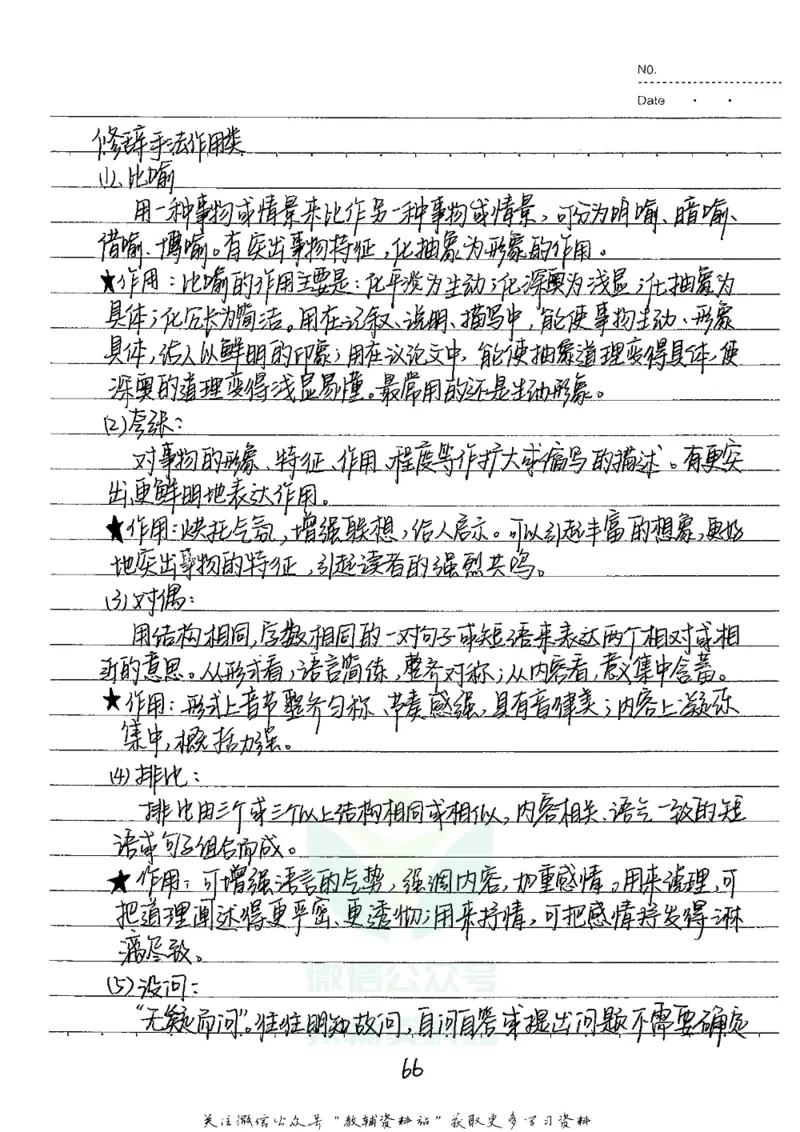 NO.
Date
修辞手法作用类
(1)、比喻
用一种事物或情景来比作另一种事物或情景,可分为明喻、暗喻、
借喻、博喻。有突出事物特征,化抽象为形象的作用。
★作用:比喻的作用主要是:化平淡为生动;化深奥为浅显;化抽象为
具体;化冗长为简洁。用在记叙、说明、描写中,能使事物生动、形象
具体,给人以鲜明的印象;用在议论文中,能使抽象道理变得具体,使
深奥的道理变得浅显易懂。最常用的还是生动形象。
(2)夸张:
对事物的形象、特征、作用、程度等作扩大或缩写的描述。有更突
出,更鲜明地表达作用。
★作用:烘托气氛,增强联想,给人启示。可以引起丰富的想象,更好
地突出事物的特征,引起读者的强烈共鸣。
(3)对偶:
用结构相同,字数相同的一对句子或短语来表达两个相对或相
近的意思。从形式看,语言简练,整齐对称;从内容看,意义集中含蓄。
★作用:形式上音节整齐匀称、节奏感强,具有音律美;内容上凝练
集中,概括力强。
(4)排比:
排比由三个或三个以上结构相同或相似,内容相关、语气一致的短
语或句子组合而成。
★作用:可增强语言的气势,强调内容,加重感情。用来说理,可
把道理阐述得更严密、更透彻;用来抒情,可把感情抒发得淋
漓尽致。
(5)设问:
“无疑而问”。往往明知故问,自问自答或提出问题不需要确定
66
微信公众号
教辅资料站
关注微信公众号“教辅资料站”获取更多学习资料